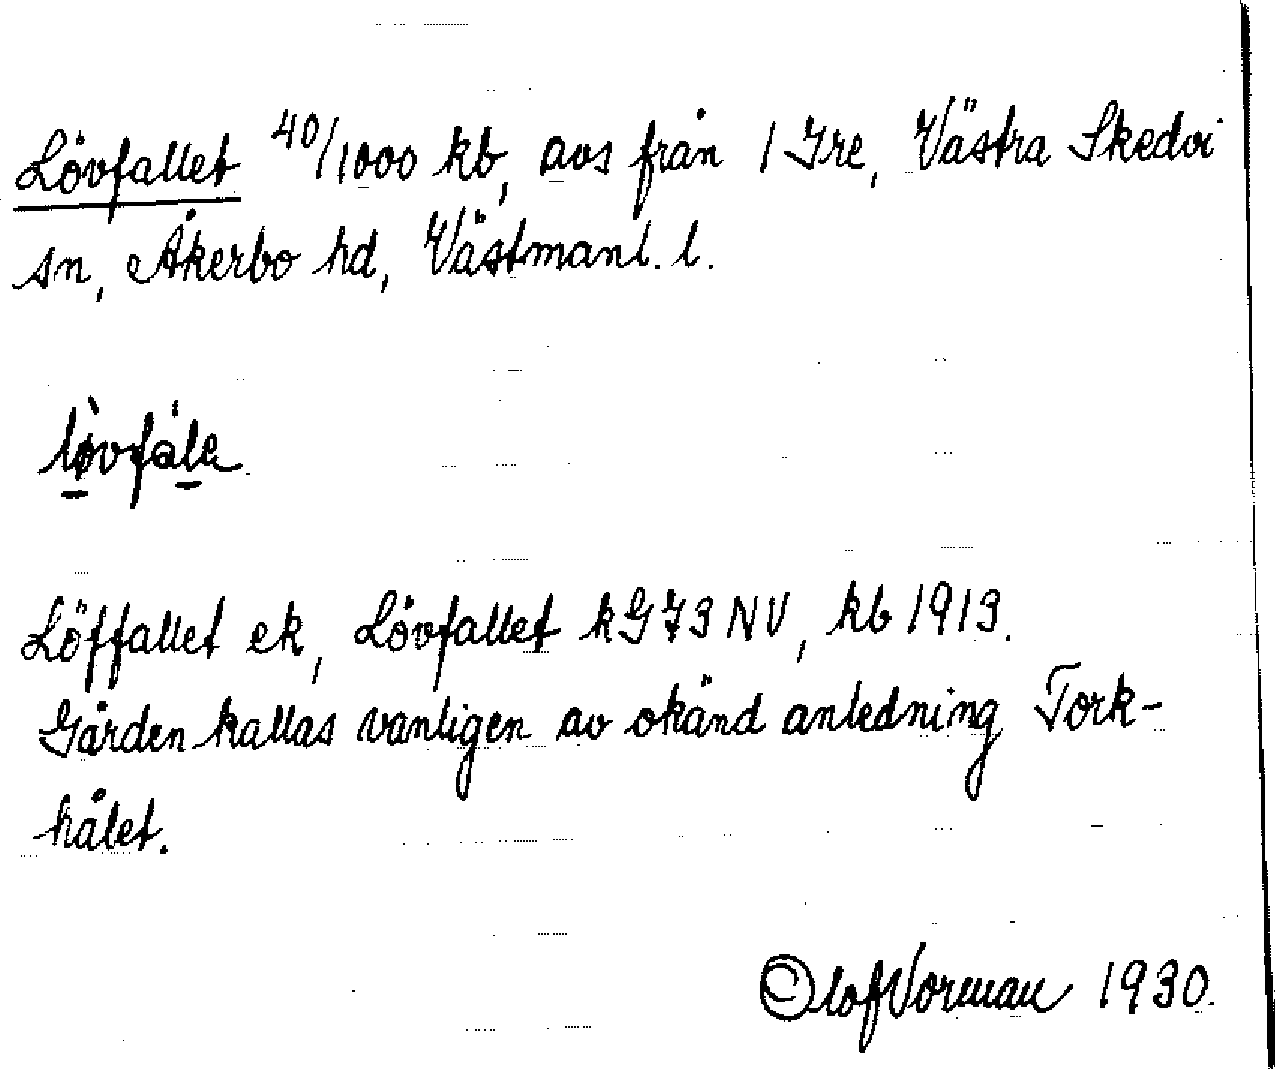 Lövfallet 40/1000 kb, avs från 1 Ire, Västra Skedvi
sn, Åkerbo hd, Västmanl. l.
Löffallet ek, Lövfallet kG73NV, kb 1913.
Gården kallas vanligen av okänd anledning Tork-
hålet.
Olof Vorman 1930.